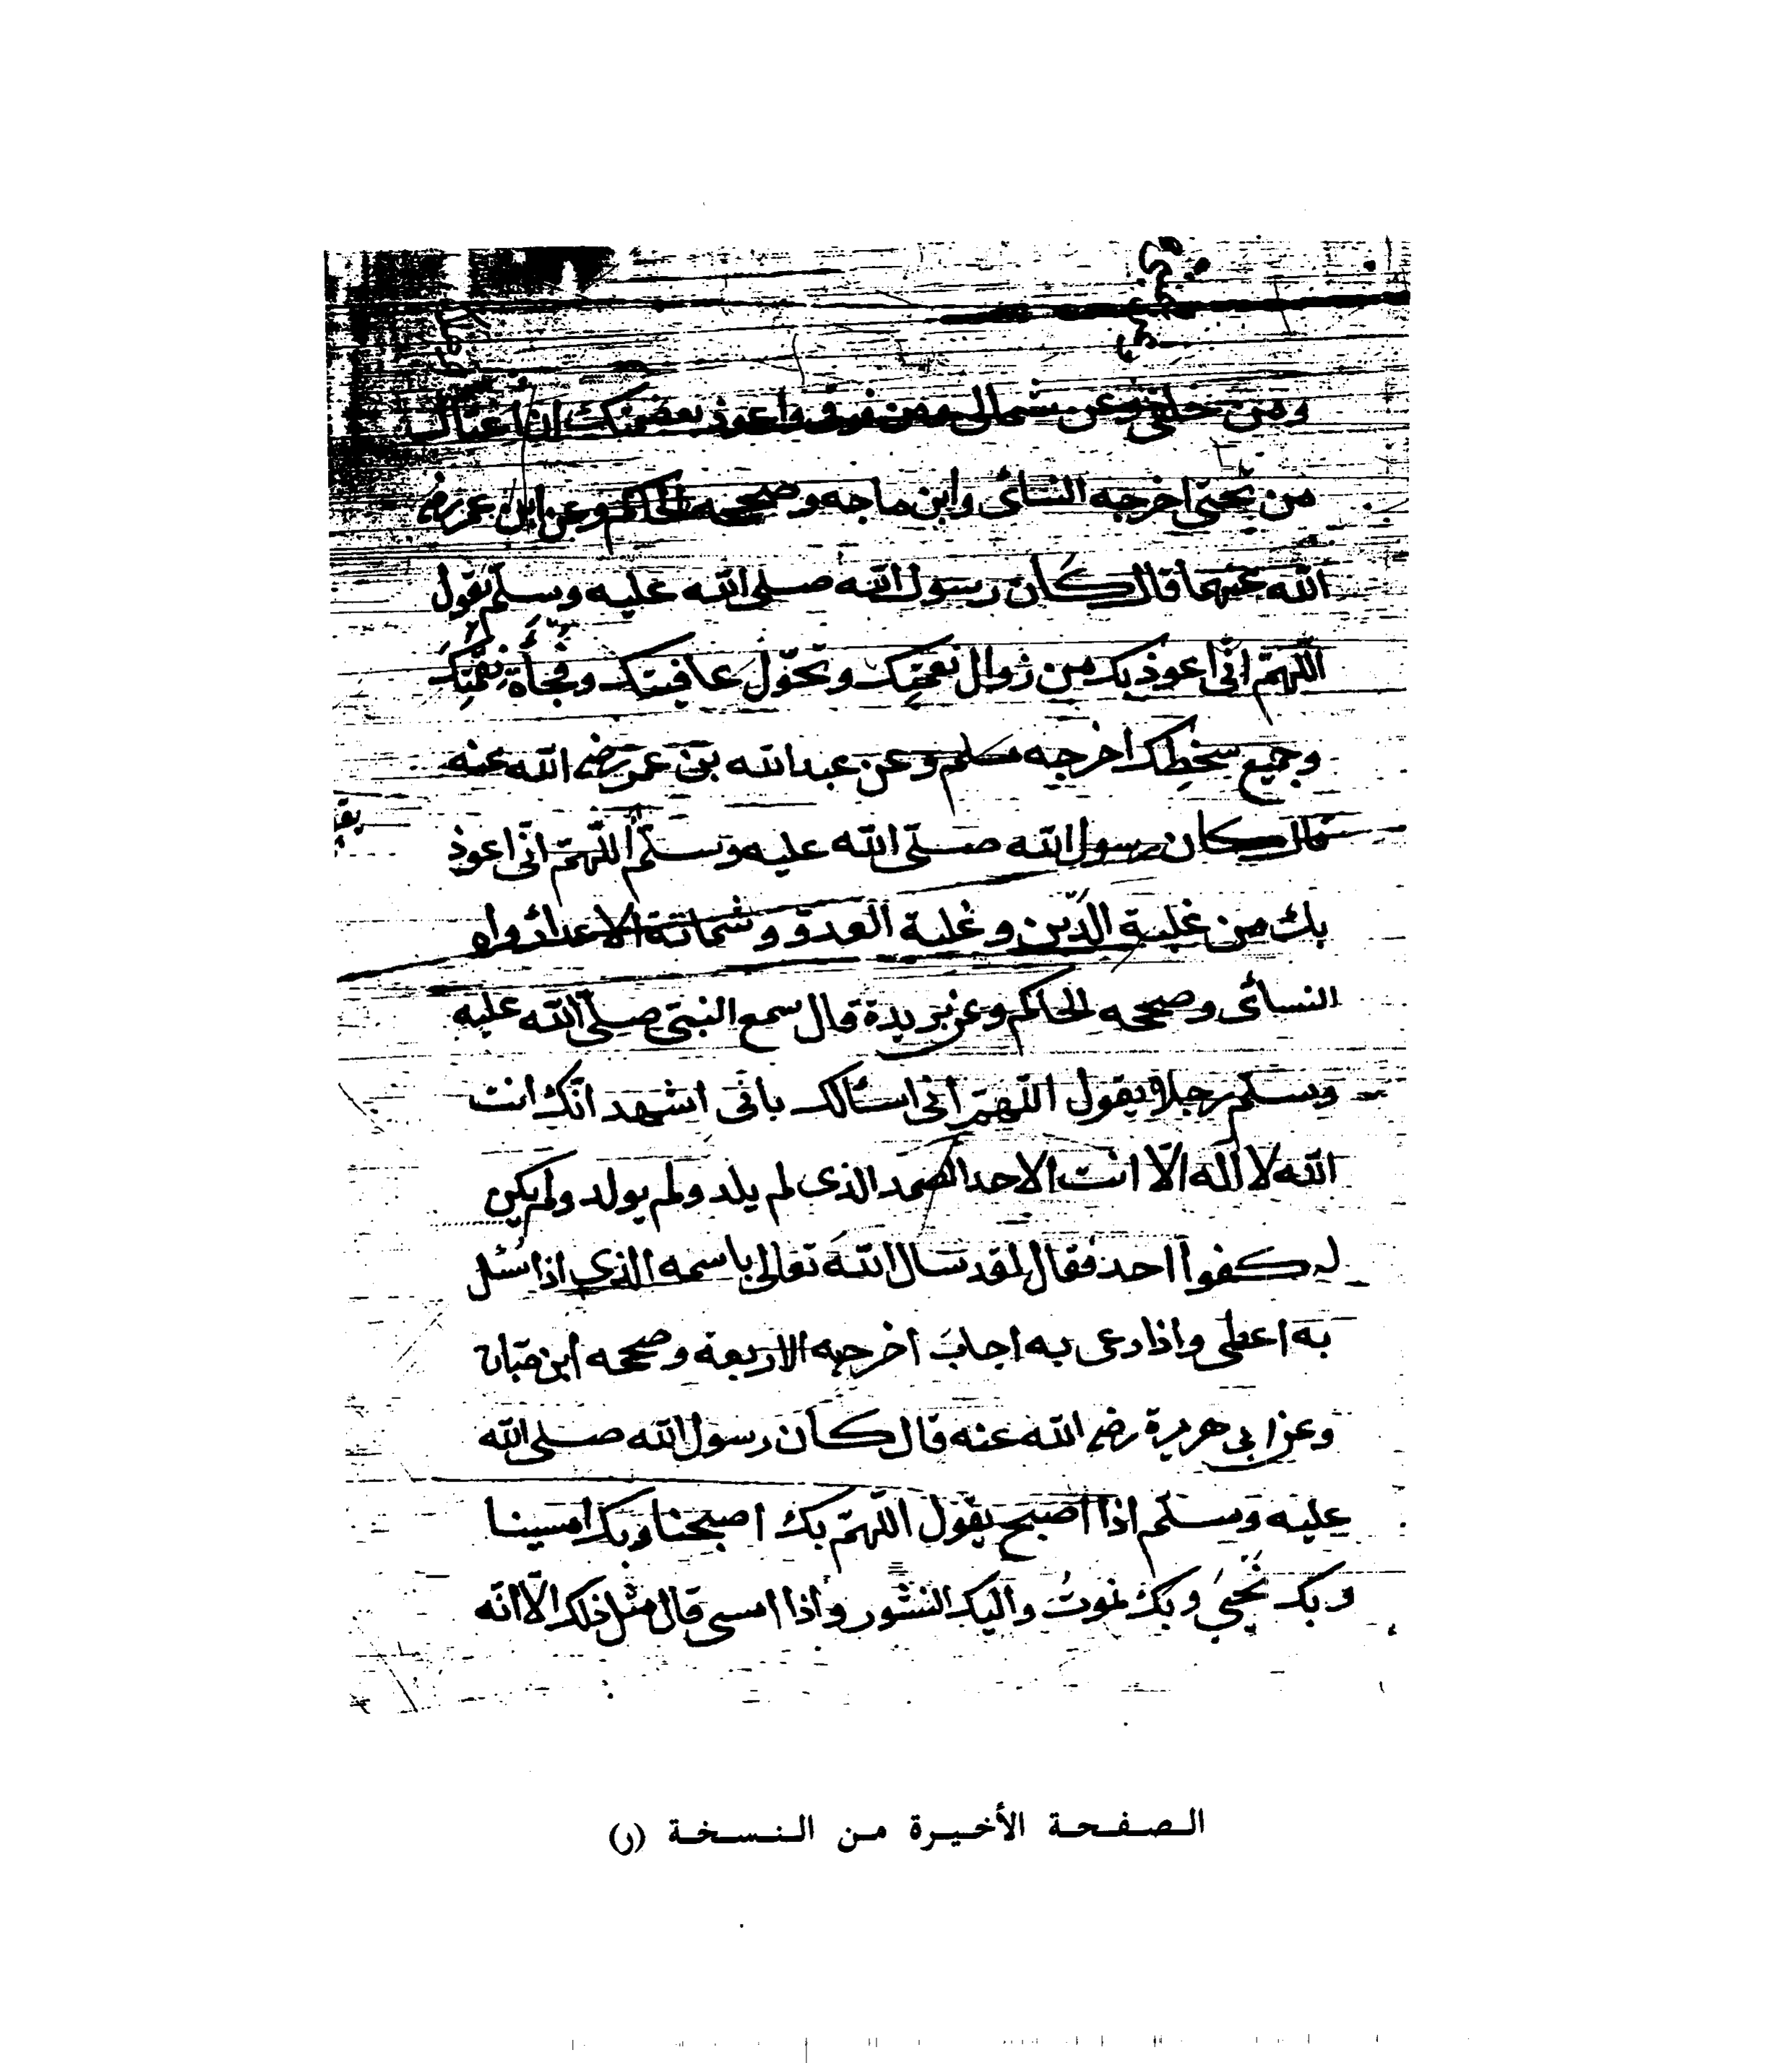 ومن خلفي وعن شمالي ومن فوقي واعوذ بعظمتك ان اغتال
من تحتي اخرجه النسائى وابن ماجه وصححه الحاكم وعن ابن عمر رضى
الله عنهما قال كان رسول الله صلى الله عليه وسلم يقول
اللّهمّ انّى اعوذ بك من زوال نعمتِك وتحوّل عافيتك وفجأة نقمتِك
وجميع سخطِك اخرجه مسلم وعن عبد الله بن عمر رضى الله عنه
قال كان رسول الله صلّى الله عليه وسلّم اللّهمّ انّى اعوذ
بك من غلبة الدّين وغلبة العدوّ وشماتة الاعداء رواه
النسائى وصححه الحاكم وعن بريدة قال سمع النبىّ صلّى الله عليه
وسلّم رجلا يقول اللّهمّ انى اسئالك بانى اشهد انّك انت
الله لا اله الّا انت الاحد الصمد الذى لم يلد ولم يولد ولم يكن
له كفواً احد فقال لقد سال الله تعالى باسمه الذى اذا سُئل
به اعطى واذا دعى به اجابَ اخرجه الاربعة وصححه ابن حبّان
وعن ابى هريرة رضى الله عنه قال كان رسول الله صلى الله
عليه وسلّم اذا اصبح يقول اللّهمّ بك اصبحنا وبك امسينا
وبك نَحيَى وبك نموتُ واليك النشور واذا امسى قال مثل ذلك الّا انّه
الصفحة الأخيرة من النسخة (ر)